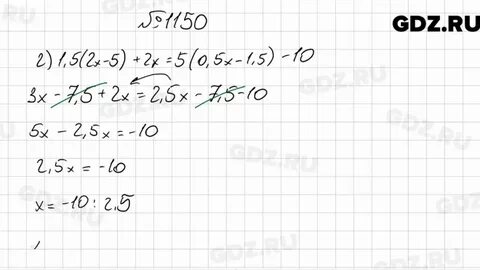 №1150
GDZ.RU
2) 1,5(2x-5) + 2x = 5(0,5x - 1,5) - 10
3x - 7,5 + 2x = 2,5x - 7,5 - 10
5x - 2,5x = -10
2,5x = -10
x = -10 : 2,5
GDZ.RU
GDZ.RU
GDZ.RU
GDZ.RU